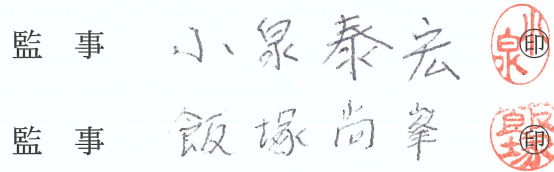 監事 小泉泰宏 ㊞
監事 飯塚尚峯 ㊞